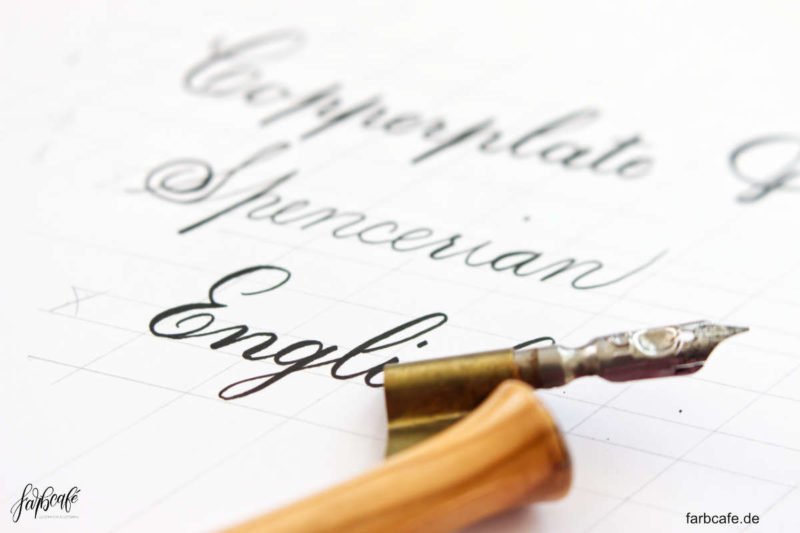 Copperplate
Spencerian
Engli
farbcafé
farbcafe.de